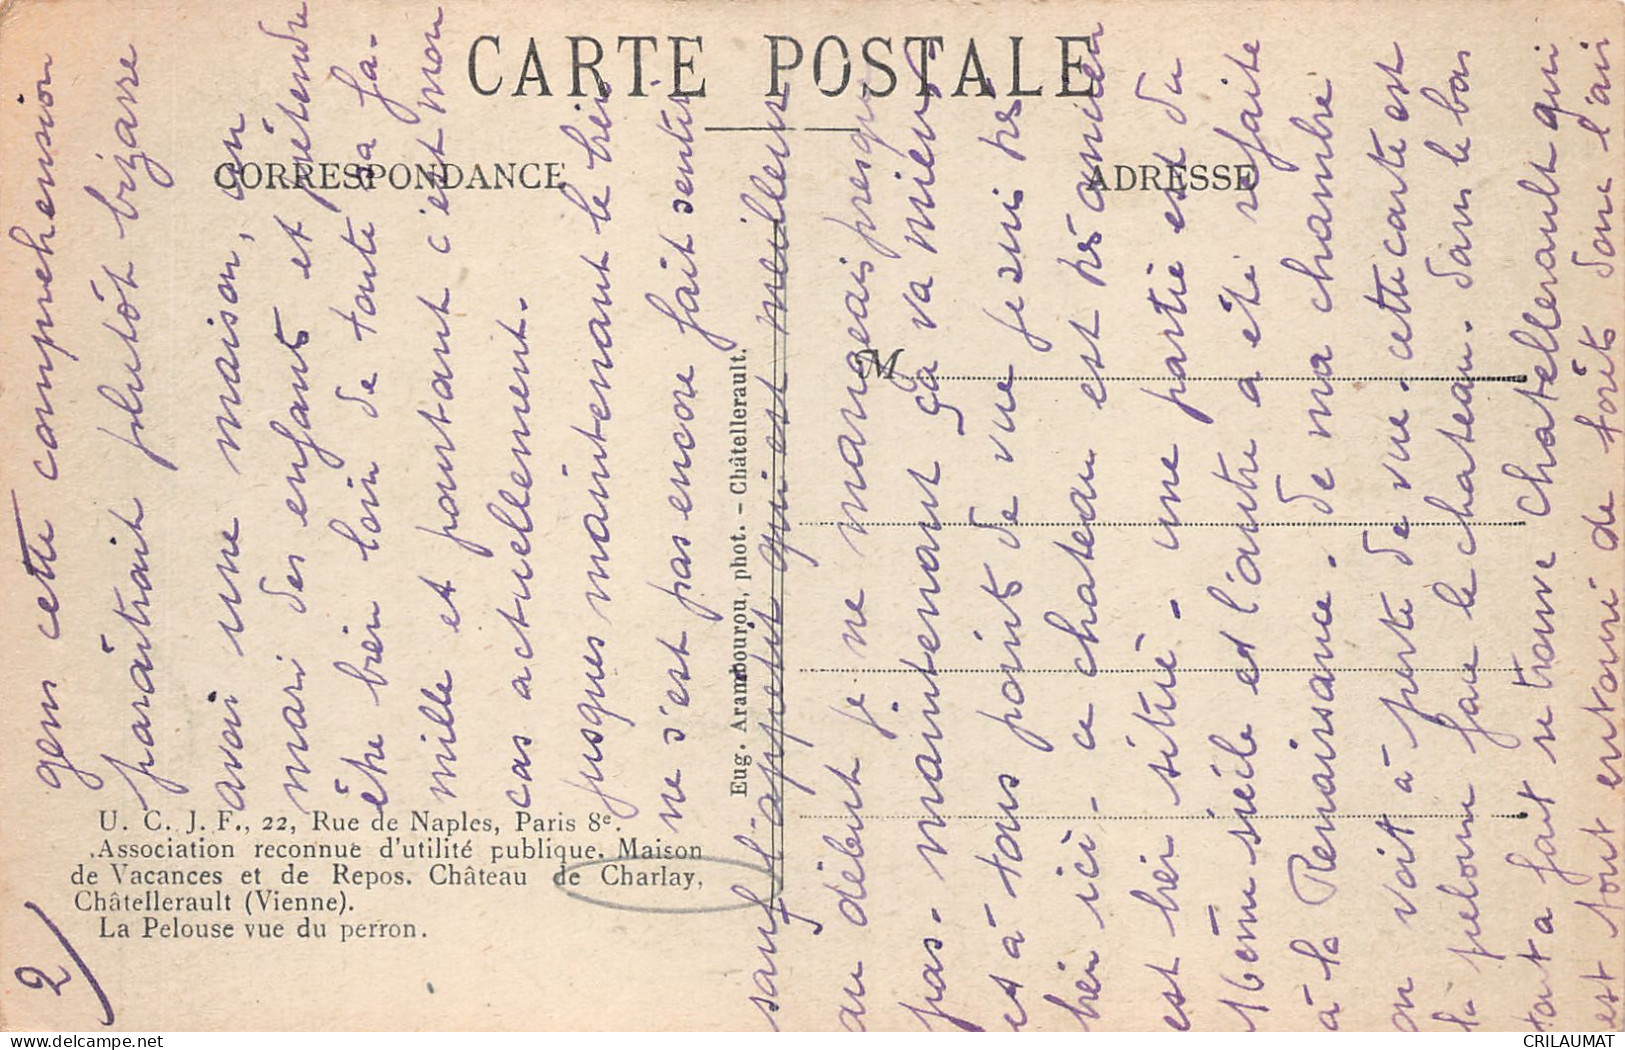 CARTE POSTALE
CORRESPONDANCE
ADRESSE
M
Eug. Arambourou, phot. - Châtellerault.
U. C. J. F., 22, Rue de Naples, Paris 8e.
Association reconnue d'utilité publique. Maison
de Vacances et de Repos. Château de Charlay,
Châtellerault (Vienne).
La Pelouse vue du perron.
2)
gem cette comprehension
paraîtrait plutôt bizarre
avoir une maison, un
mari des enfants et prétendre
être bien loin de toute sa fa-
mille et pourtant c'est mon
cas actuellement.
jusques maintenant le
ne s'est pas encore fait sentir
sauf l'appetit qui est meilleur
au début je ne mangeais presque
pas. maintenant ça va mieux
et à tous points de vue je suis très
bien ici. ce chateau est très ancien
est bien situé. une partie est du
16ème siècle et l'autre a été refaite
à la Renaissance. de ma chambre
on voit à perte de vue. cette carte est
la pelouse face le chateau. dans le bas
tout a fait se trouve Chatellerault qui
est tout entouré de forêts donc l'air
CRILAUMAT